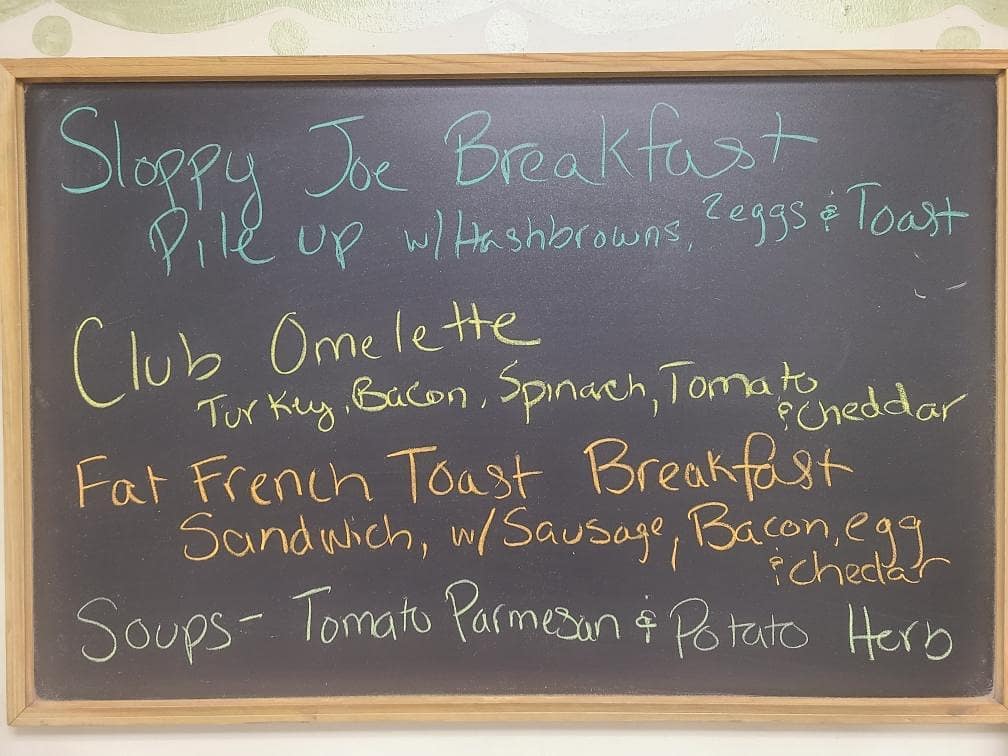 Sloppy Joe Breakfast
Pile up w/ Hashbrowns, 2 eggs & Toast
Club Omelette
Turkey, Bacon, Spinach, Tomato
& Cheddar
Fat French Toast Breakfast
Sandwich, w/ Sausage, Bacon, egg
& Chedar
Soups - Tomato Parmesan & Potato Herb